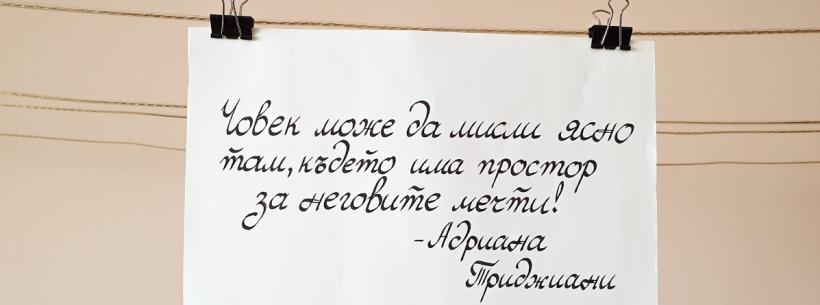 Човек може да мисли ясно
там, където има простор
за неговите мечти!
- Адриана
Триджиани